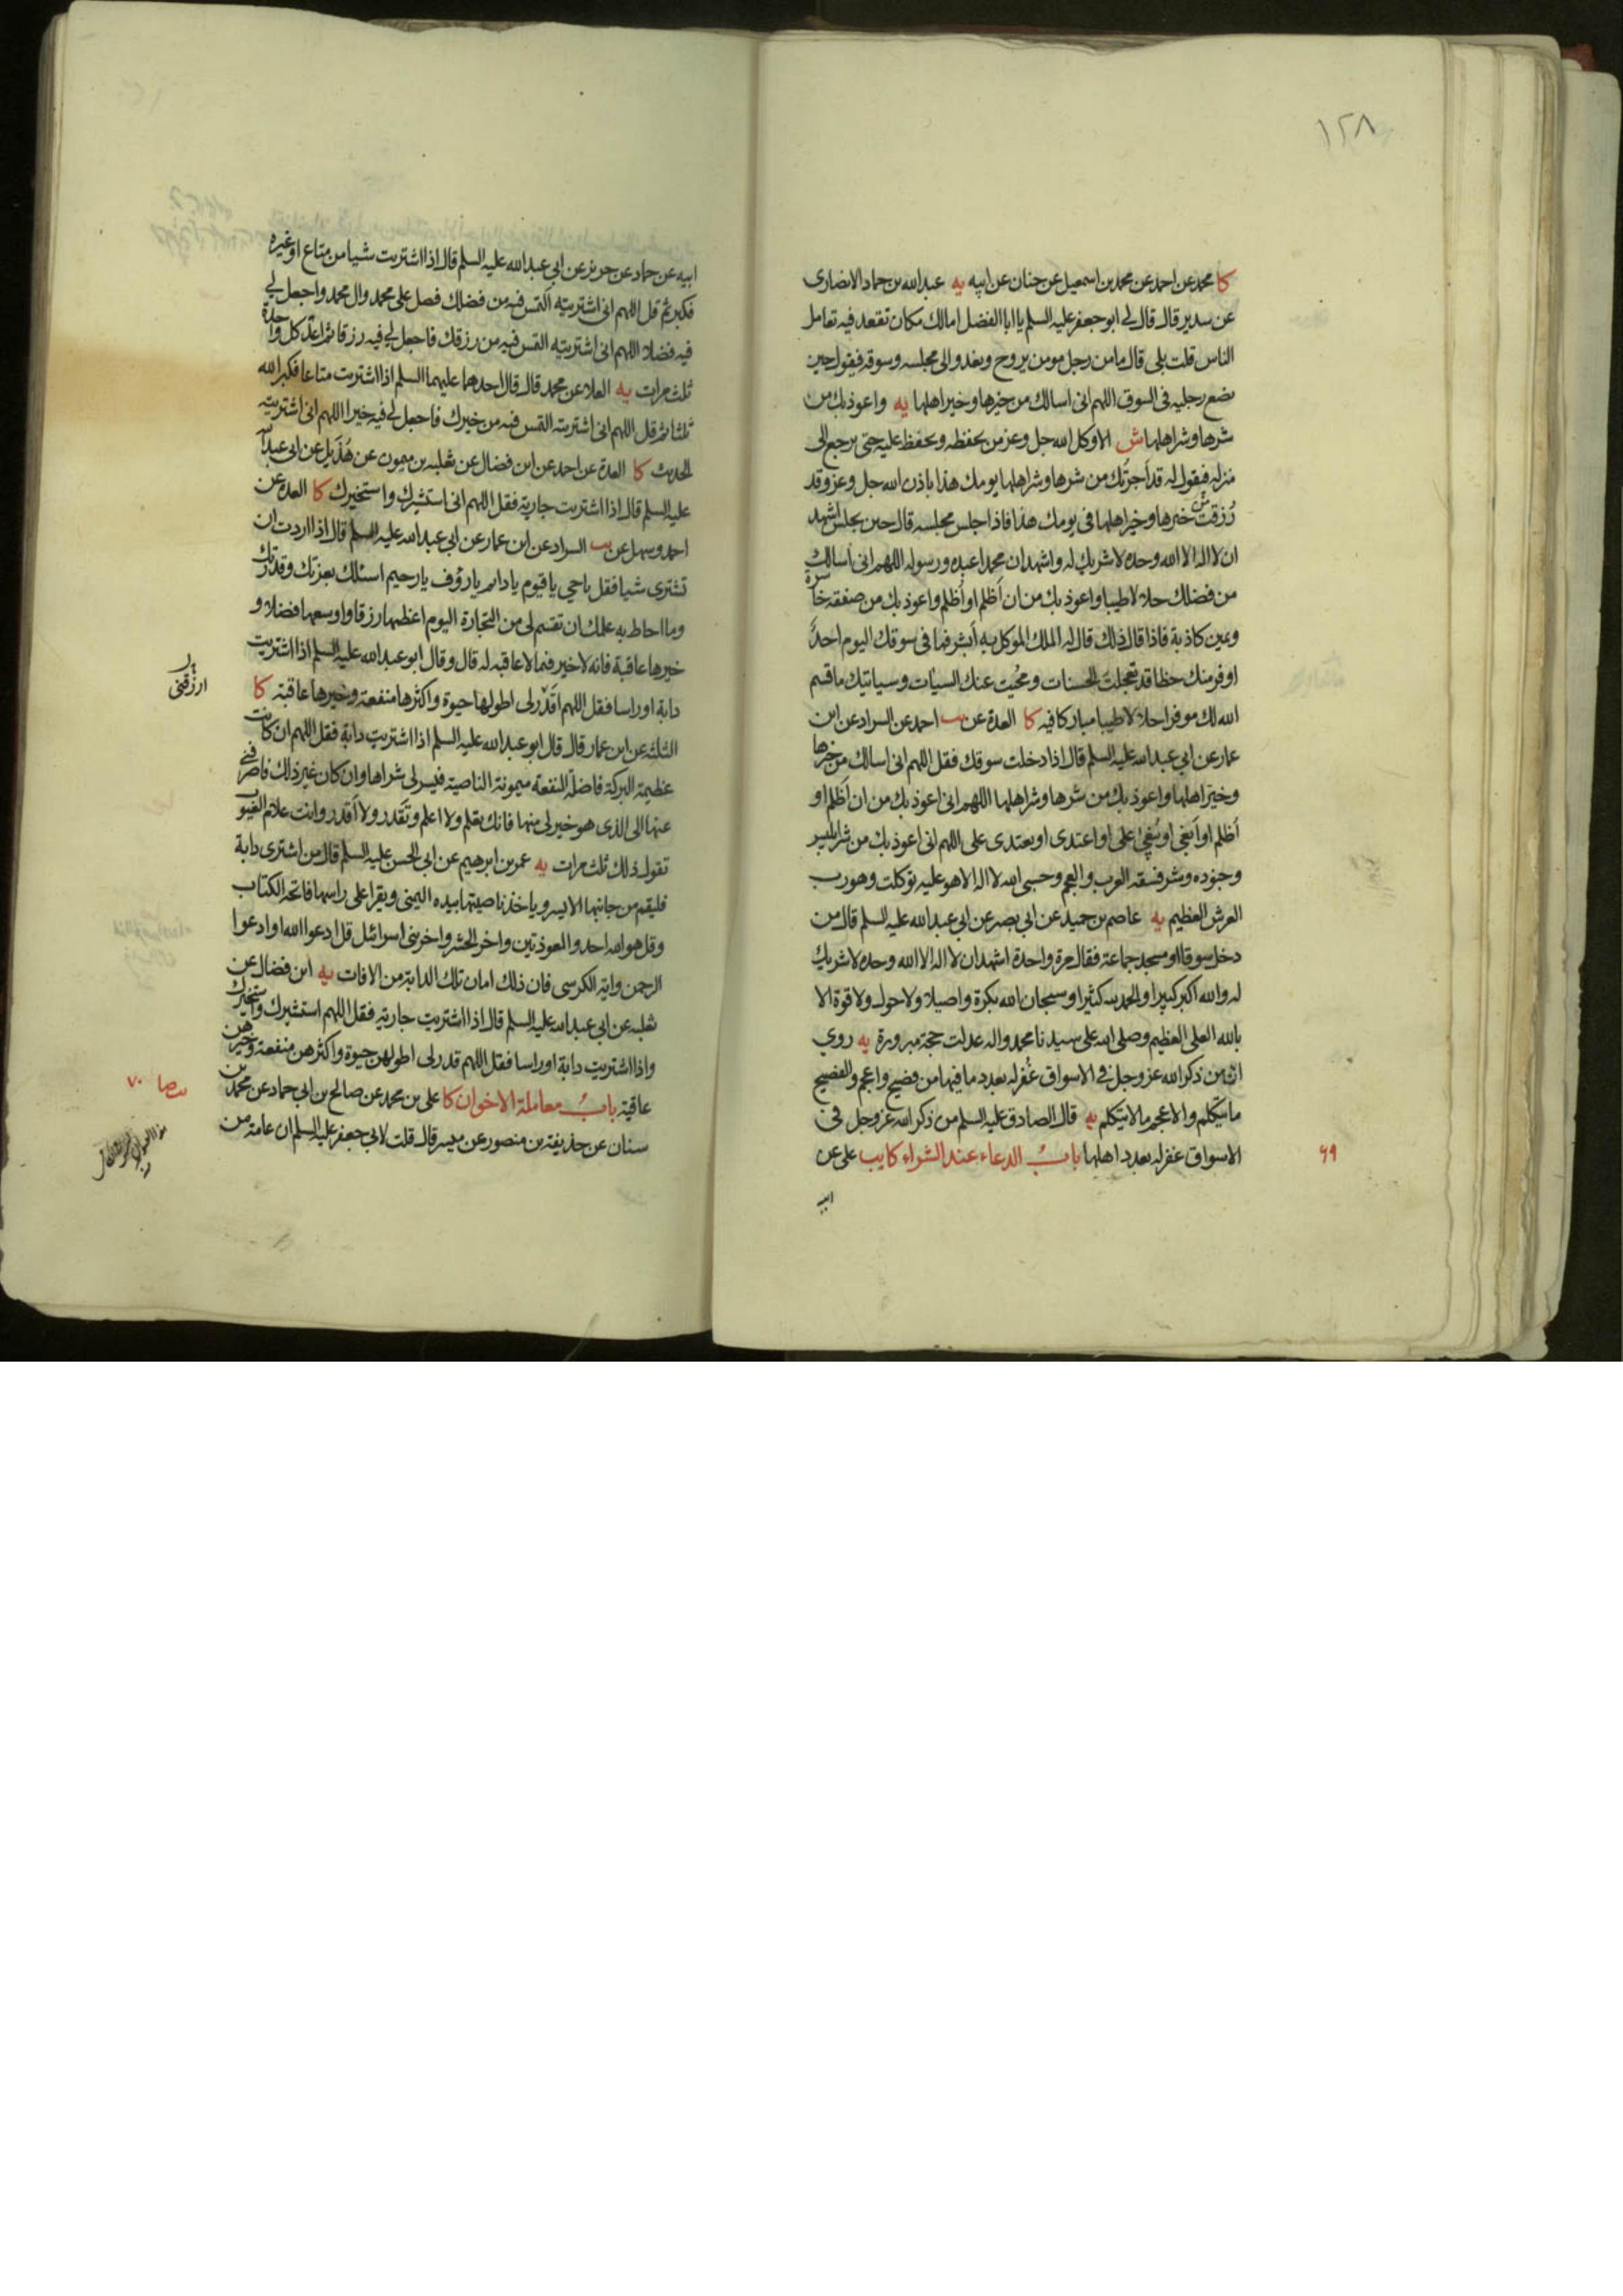 ١٢٨
كا محمد عن احمد عن محمد بن اسمعيل عن حنان عن ابيه يه عبدالله بن حماد الانصارى
عن سدير قال قال لى ابو جعفر عليه السلم يا ابا الفضل امالك مكان تقعد فيه تعامل
الناس قلت بلى قال ما من رجل مومن يروح ويغدو الى مجلسه وسوقه فيقول حين
يضع رجليه فى السوق اللهم انى اسالك من خيرها وخير اهلها يه واعوذ بك من
شرها وشر اهلها ش الا وكل الله جل وعز من يحفظه ويحفظ عليه حتى يرجع الى
منزله فيقول له قد اجرتك من شرها وشر اهلها يومك هذا باذن الله جل وعز وقد
رزقت خيرها وخير اهلها فى يومك هذا فاذا جلس مجلسه قال حين يجلس اشهد
ان لا اله الا الله وحده لا شريك له واشهد ان محمدا عبده ورسوله اللهم انى اسالك
من فضلك حلالا طيبا واعوذ بك من ان اظلم او اظلم واعوذ بك من صفقه خاسرة
ويمين كاذبة فاذا قال ذلك قال له الملك الموكل به ابشر فما فى سوقك اليوم احد
اوفر منك حظا قد تعجلت الحسنات ومحيت عنك السيات وسياتيك ما قسم
الله لك موفرا حلالا طيبا مباركا فيه كا العدة عن يب احمد عن السراد عن ابن
عمار عن ابى عبد الله عليه السلم قال اذا دخلت سوقك فقل اللهم انى اسالك من خيرها
وخير اهلها واعوذ بك من شرها وشر اهلها اللهم انى اعوذ بك من ان اظلم او
اظلم او ابغى او يبغى على او اعتدى او يعتدى على اللهم انى اعوذ بك من شر ابليس
وجنوده وشر فسقه العرب والعجم وحسبى الله لا اله الا هو عليه توكلت وهو رب
العرش العظيم يه عاصم بن حميد عن ابى بصير عن ابى عبد الله عليه السلم قال من
دخل سوقا او مسجد جماعة فقال مرة واحدة اشهد ان لا اله الا الله وحده لا شريك
له والله اكبر كبيرا والحمد لله كثيرا وسبحان الله بكرة واصيلا ولا حول ولا قوة الا
بالله العلى العظيم وصلى الله على سيدنا محمد واله عدلت حجة مبرورة يه روي
ان من ذكر الله عز وجل فى الاسواق غفر له بعدد ما فيها من فصيح واعجم والفصيح
ما يتكلم والاعجم ما لا يتكلم يه قال الصادق عليه السلم من ذكر الله عز وجل فى
الاسواق غفر له بعدد اهلها باب الدعاء عند الشراء كا يب على عن
٦٩
ابيه
ابيه عن حماد عن حريز عن ابى عبد الله عليه السلم قال اذا اشتريت شيا من متاع او غيره
فكبر ثم قل اللهم انى اشتريته التمس فيه من فضلك فصل على محمد وال محمد واجعل لى
فيه فضلا اللهم انى اشتريته التمس فيه من رزقك فاجعل لى فيه رزقا ثم اعد كل واحدة
ثلث مرات يه العلا عن محمد قال قال احدهما عليهما السلم اذا اشتريت متاعا فكبر الله
ثلثا ثم قل اللهم انى اشتريته التمس فيه من خيرك فاجعل لى فيه خيرا اللهم انى اشتريته
الحديث كا العدة عن احمد عن ابن فضال عن ثعلبه بن ميمون عن هذيل عن ابى عبد الله
عليه السلم قال اذا اشتريت جارية فقل اللهم انى استشيرك واستخيرك كا العدة عن
احمد وسهل عن يب السراد عن ابن عمار عن ابى عبد الله عليه السلم قال اذا اردت ان
تشترى شيا فقل ياحى ياقيوم يا دائم يا رؤف يا رحيم اسئلك بعزتك وقدرتك
وما احاط به علمك ان تقسم لى من التجارة اليوم اعظمها رزقا واوسعها فضلا و
خيرها عاقبة فانه لا خير فيما لا عاقبه له قال وقال ابو عبد الله عليه السلم اذا اشتريت
دابة او راسا فقل اللهم اقدر لى اطولها حيوة واكثرها منفعة وخيرها عاقبة كا
ارزقنى
الثلثه عن ابن عمار قال قال ابو عبد الله عليه السلم اذا اشتريت دابة فقل اللهم ان كانت
عظيمة البركة فاضلة المنفعة ميمونة الناصية فيسر لى شراها وان كان غير ذلك فاصرفنى
عنها الى الذى هو خير لى منها فانك تعلم ولا اعلم وتقدر ولا اقدر وانت علام الغيوب
تقول ذلك ثلث مرات يه عمر بن ابرهيم عن ابى الحسن عليه السلم قال من اشترى دابة
فليقم من جانبها الايسر وياخذ ناصيتها بيده اليمنى ويقرا على راسها فاتحة الكتاب
وقل هو الله احد والمعوذتين واخر الحشر واخر بنى اسرائل قل ادعوا الله او ادعوا
الرحمن واية الكرسى فان ذلك امان تلك الدابة من الافات يه ابن فضال عن
ثعلبه عن ابى عبد الله عليه السلم قال اذا اشتريت جارية فقل اللهم استشيرك واستخيرك
واذا اشتريت دابة او راسا فقل اللهم قدر لى اطولهن حيوة واكثرهن منفعة وخيرهن
عاقبة باب معاملة الاخوان كا على بن محمد عن صالح بن ابى حماد عن محمد بن
سنان عن حذيفة بن منصور عن ميسر قال قلت لابى جعفر عليه السلم ان عامة من
٧٠